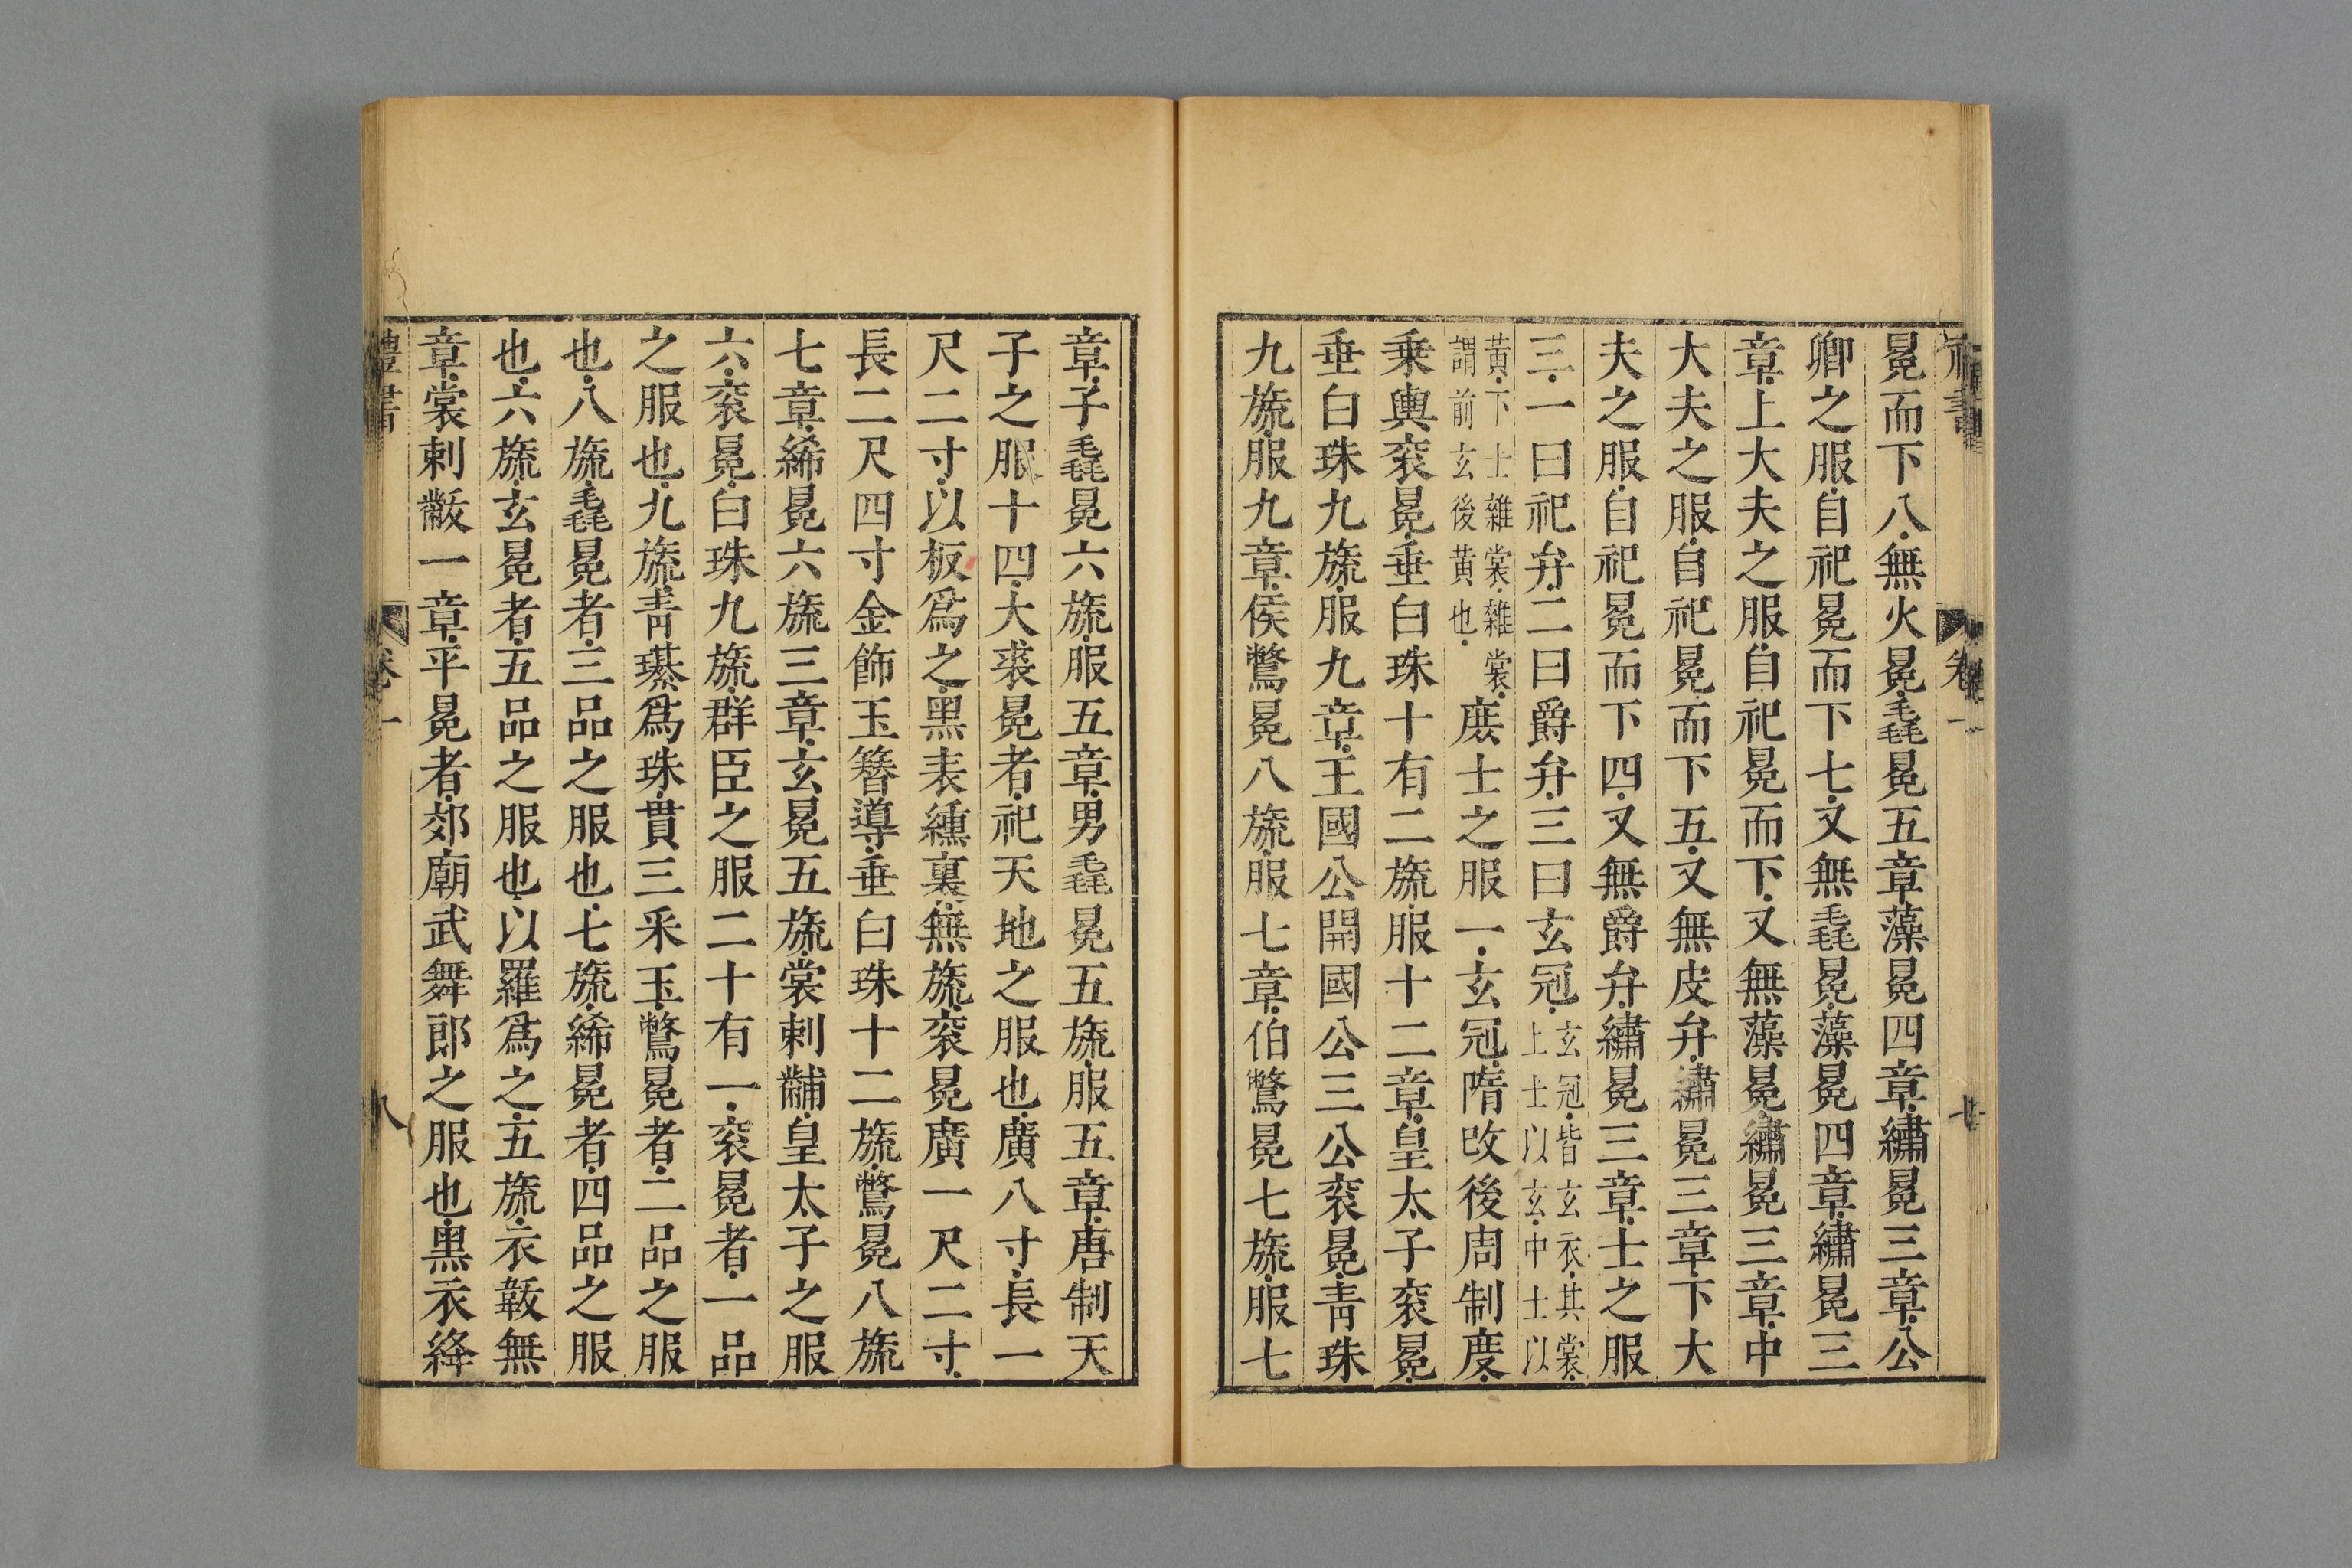 冕而下八無火冕毳冕五章藻冕四章繡冕三章公
卿之服自祀冕而下七又無毳冕藻冕四章繡冕三
章上大夫之服自祀冕而下又無藻冕繡冕三章中
大夫之服自祀冕而下五又無皮弁繡冕三章下大
夫之服自祀冕而下四又無爵弁繡冕三章士之服
三一曰祀弁二曰爵弁三曰玄冠玄冠皆玄衣其裳上士以玄中士以
黃下士雜裳雜裳謂前玄後黃也庶士之服一玄冠隋改後周制度
乗輿衮冕垂白珠十有二旒服十二章皇太子衮冕
垂白珠九旒服九章王國公開國公三公衮冕青珠
九旒服九章侯鷩冕八旒服七章伯鷩冕七旒服七
卷一
章子毳冕六旒服五章男毳冕五旒服五章唐制天
子之服十四大裘冕者祀天地之服也廣八寸長一
尺二寸以板爲之黑表纁裏無旒衮冕廣一尺二寸
長二尺四寸金飾玉簪導垂白珠十二旒鷩冕八旒
七章絺冕六旒三章玄冕五旒裳刺黼皇太子之服
六衮冕白珠九旒群臣之服二十有一衮冕者一品
之服也九旒青璂爲珠貫三采玉鷩冕者二品之服
也八旒毳冕者三品之服也七旒絺冕者四品之服
也六旒玄冕者五品之服也以羅爲之五旒衣韍無
章裳刺黻一章平冕者郊廟武舞郎之服也黑衣絳
禮書 卷一 八